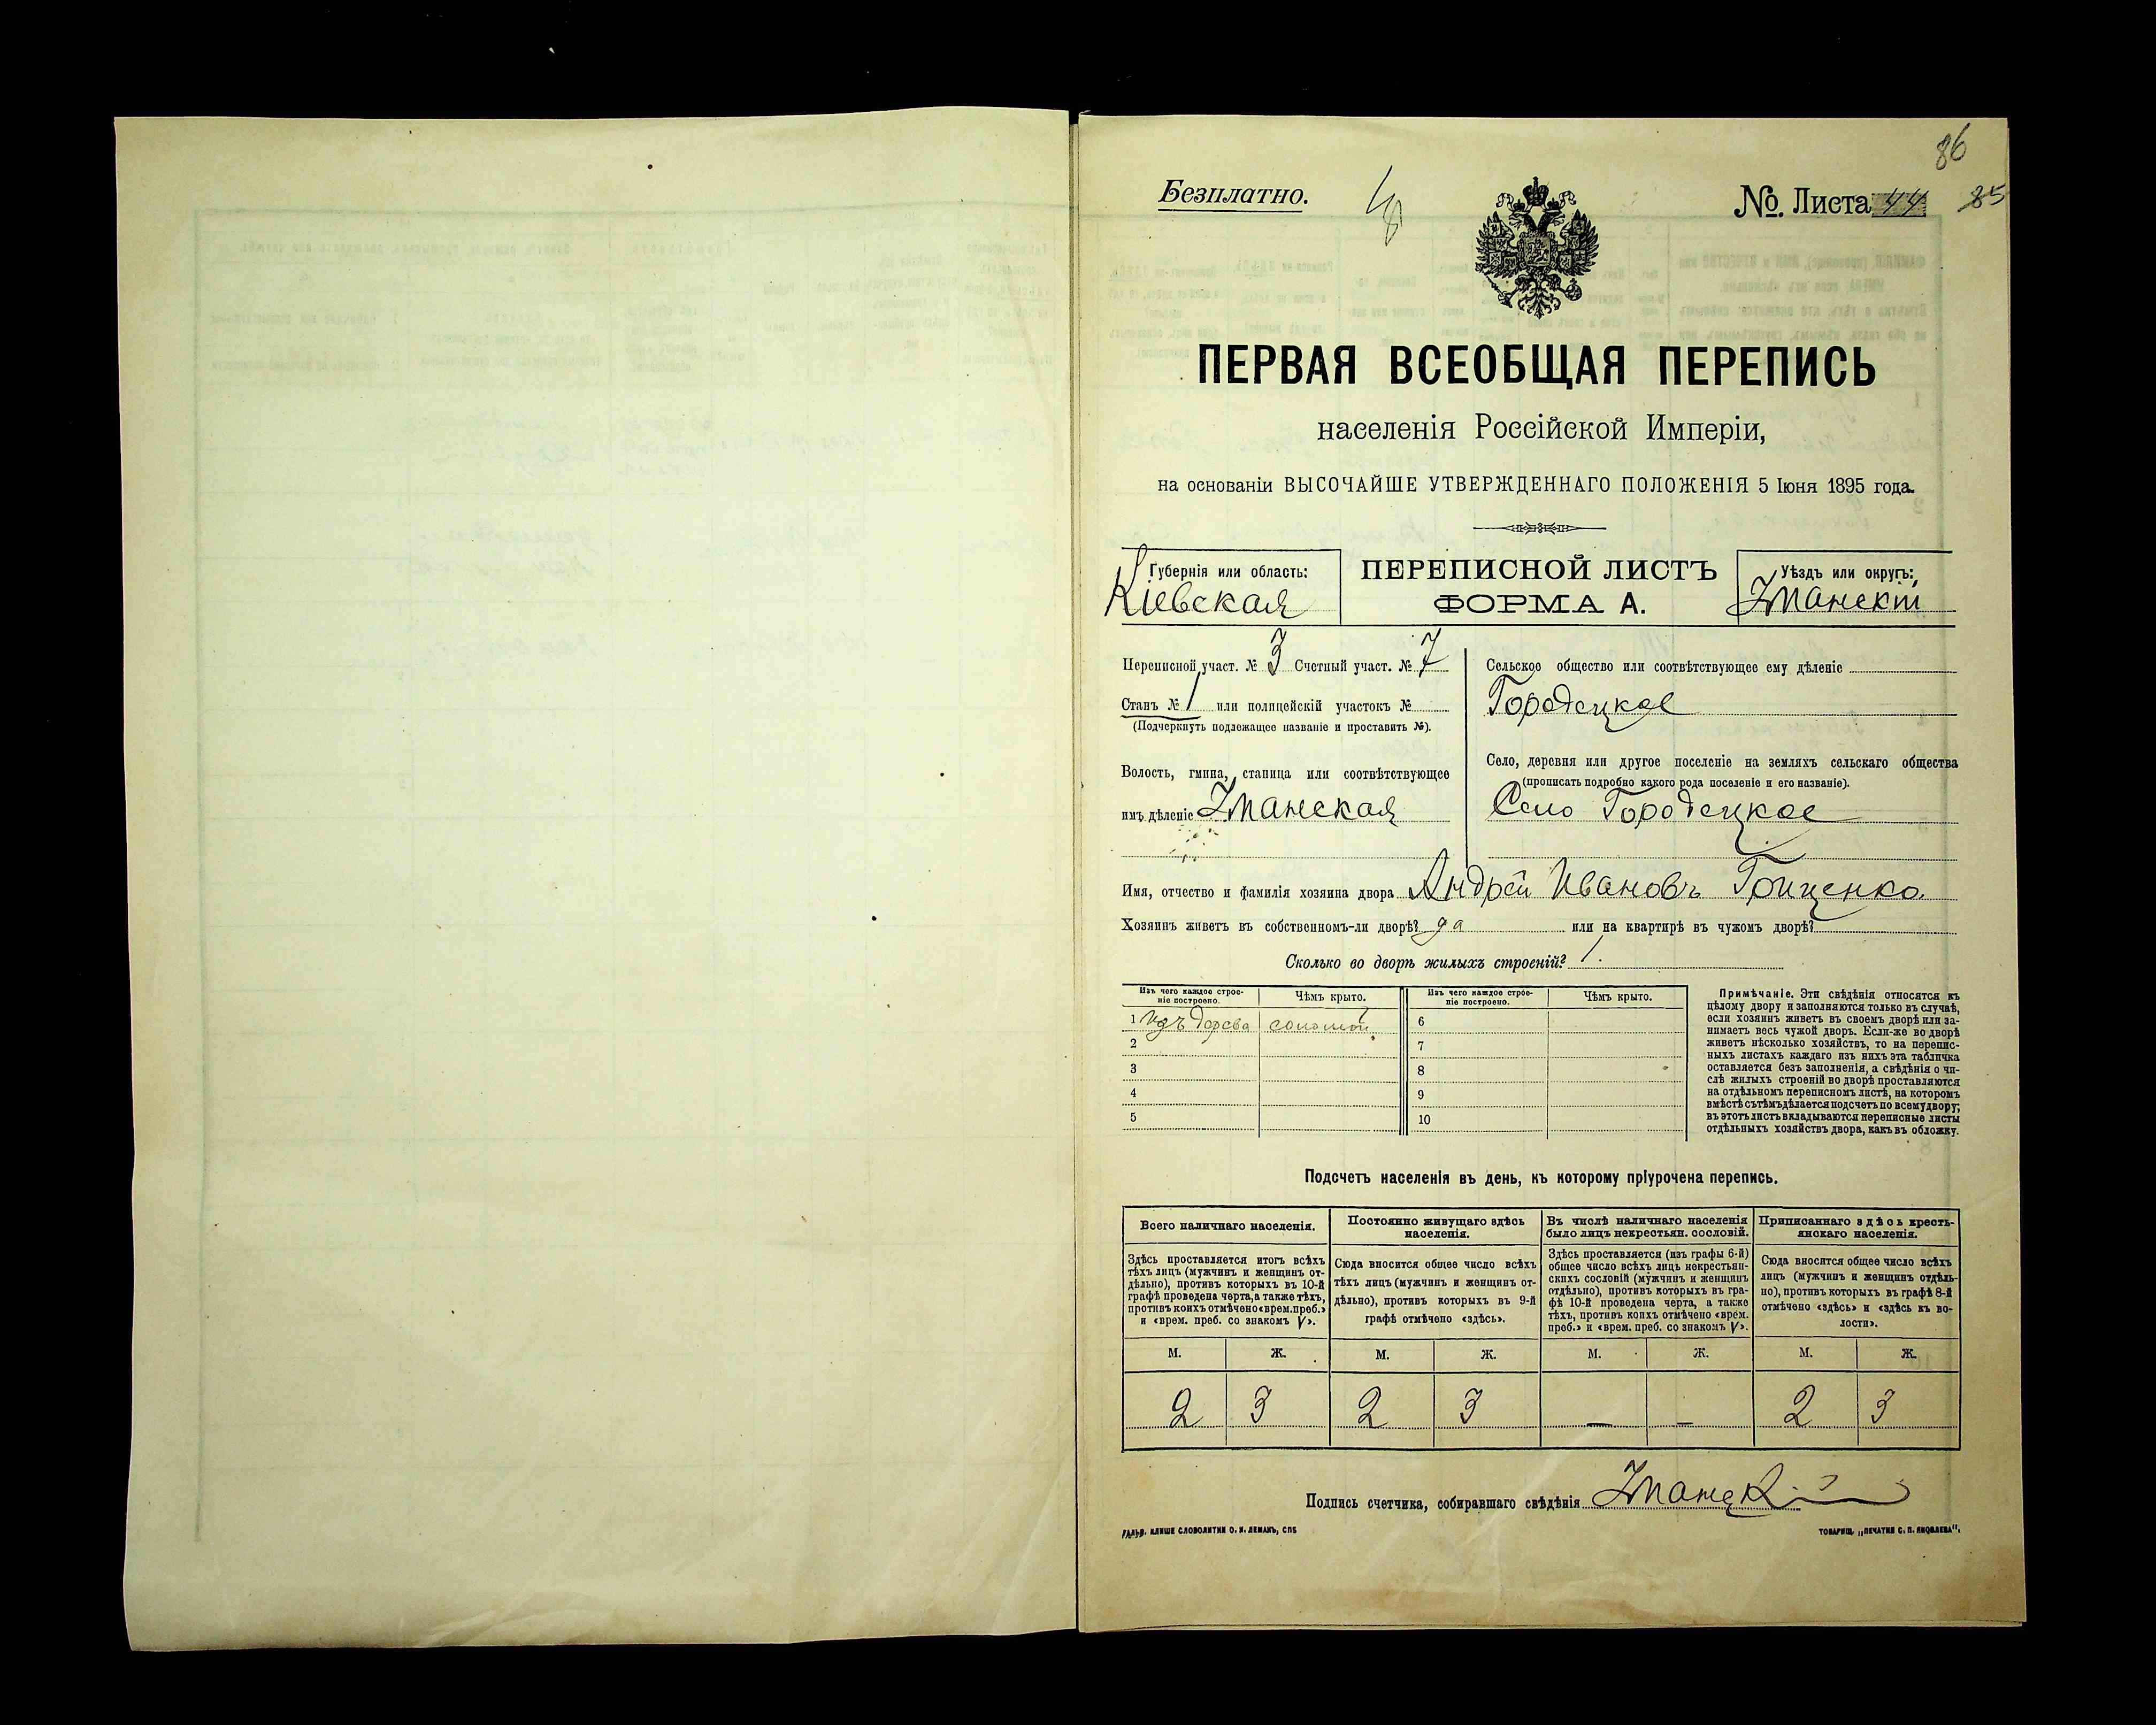 86
Безплатно.
№ Листа 44 85
ПЕРВАЯ ВСЕОБЩАЯ ПЕРЕПИСЬ
населенія Россійской Имперіи,
на основаніи ВЫСОЧАЙШЕ УТВЕРЖДЕННАГО ПОЛОЖЕНІЯ 5 Іюня 1895 года.
Губернія или область:
Кіевская
ПЕРЕПИСНОЙ ЛИСТЪ
ФОРМА А.
Уѣздъ или округъ:
Уманскій
Переписной участ. № 3 Счетный участ. № 7
Станъ № 1 или полицейскій участокъ №
(Подчеркнуть подлежащее названіе и проставить №).
Волость, гмина, станица или соотвѣтствующее
имъ дѣленіе Уманская
Сельское общество или соотвѣтствующее ему дѣленіе
Городецкое
Село, деревня или другое поселеніе на земляхъ сельскаго общества
(прописать подробно какого рода поселеніе и его названіе).
Село Городецкое
Имя, отчество и фамилія хозяина двора Андрей Ивановъ Гриценко
Хозяинъ живетъ въ собственномъ-ли дворѣ? да или на квартирѣ въ чужомъ дворѣ?
Сколько во дворѣ жилыхъ строеній? 1.
Изъ чего каждое строе-
ніе построено.
Чѣмъ крыто.
Изъ чего каждое строе-
ніе построено.
Чѣмъ крыто.
1 изъ дерева соломой 6
2 7
3 8
4 9
5 10
Примѣчаніе. Эти свѣдѣнія относятся къ
цѣлому двору и заполняются только въ случаѣ,
если хозяинъ живетъ въ своемъ дворѣ или за-
нимаетъ весь чужой дворъ. Если-же во дворѣ
живетъ нѣсколько хозяйствъ, то на перепис-
ныхъ листахъ каждаго изъ нихъ эта табличка
оставляется безъ заполненія, а свѣдѣнія о чи-
слѣ жилыхъ строеній во дворѣ проставляются
на отдѣльномъ переписномъ листѣ, на которомъ
вмѣстѣ съ тѣмъ дѣлается подсчетъ по всему двору;
въ этотъ листъ вкладываются переписные листы
отдѣльныхъ хозяйствъ двора, какъ въ обложку.
Подсчетъ населенія въ день, къ которому пріурочена перепись.
Всего наличнаго населенія.
Здѣсь проставляется итогъ всѣхъ
тѣхъ лицъ (мужчинъ и женщинъ от-
дѣльно), противъ которыхъ въ 10-й
графѣ проведена черта, а также тѣхъ,
противъ коихъ отмѣчено «врем. преб.»
и «врем. преб. со знакомъ V».
Постоянно живущаго здѣсь
населенія.
Сюда вносится общее число всѣхъ
тѣхъ лицъ (мужчинъ и женщинъ от-
дѣльно), противъ которыхъ въ 9-й
графѣ отмѣчено «здѣсь».
Въ числѣ наличнаго населенія
было лицъ некрестьян. сословій.
Здѣсь проставляется (изъ графы 6-й)
общее число всѣхъ лицъ некрестьян-
скихъ сословій (мужчинъ и женщинъ
отдѣльно), противъ которыхъ въ гра-
фѣ 10-й проведена черта, а также
тѣхъ, противъ коихъ отмѣчено «врем.
преб.» и «врем. преб. со знакомъ V».
Приписаннаго здѣсь кресть-
янскаго населенія.
Сюда вносится общее число всѣхъ
лицъ (мужчинъ и женщинъ отдѣль-
но), противъ которыхъ въ графѣ 8-й
отмѣчено «здѣсь» и «здѣсь къ во-
лости».
М. Ж. М. Ж. М. Ж. М. Ж.
2 3 2 3 — — 2 3
Подпись счетчика, собиравшаго свѣдѣнія
КЛИШЕ СЛОВОЛИТНИ О. И. ЛЕМАНЪ, СПБ
ТОВАРИЩ. „ПЕЧАТНЯ С. П. ЯКОВЛЕВА".